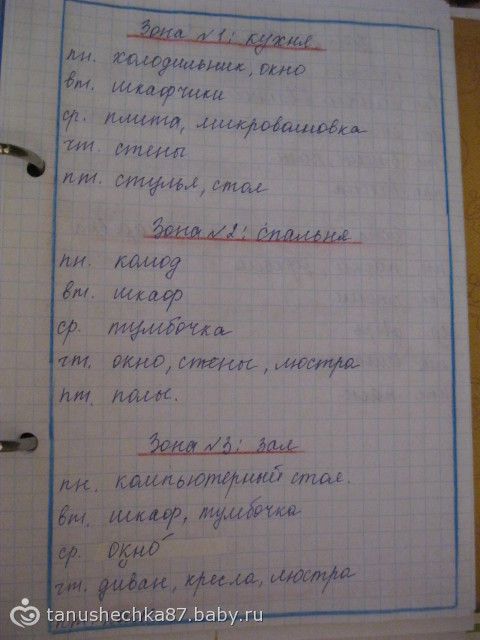 Зона №1: кухня.
пн. холодильник, окно
вт. шкафчики
ср. плита, микроволновка
чт. стены
пт. стулья, стол
Зона №2: спальня
пн. комод
вт. шкаф
ср. тумбочка
чт. окно, стены, люстра
пт. полы.
Зона №3: зал
пн. компьютерный стол.
вт. шкаф, тумбочка
ср. окно
чт. диван, кресла, люстра
tanushechka87.baby.ru